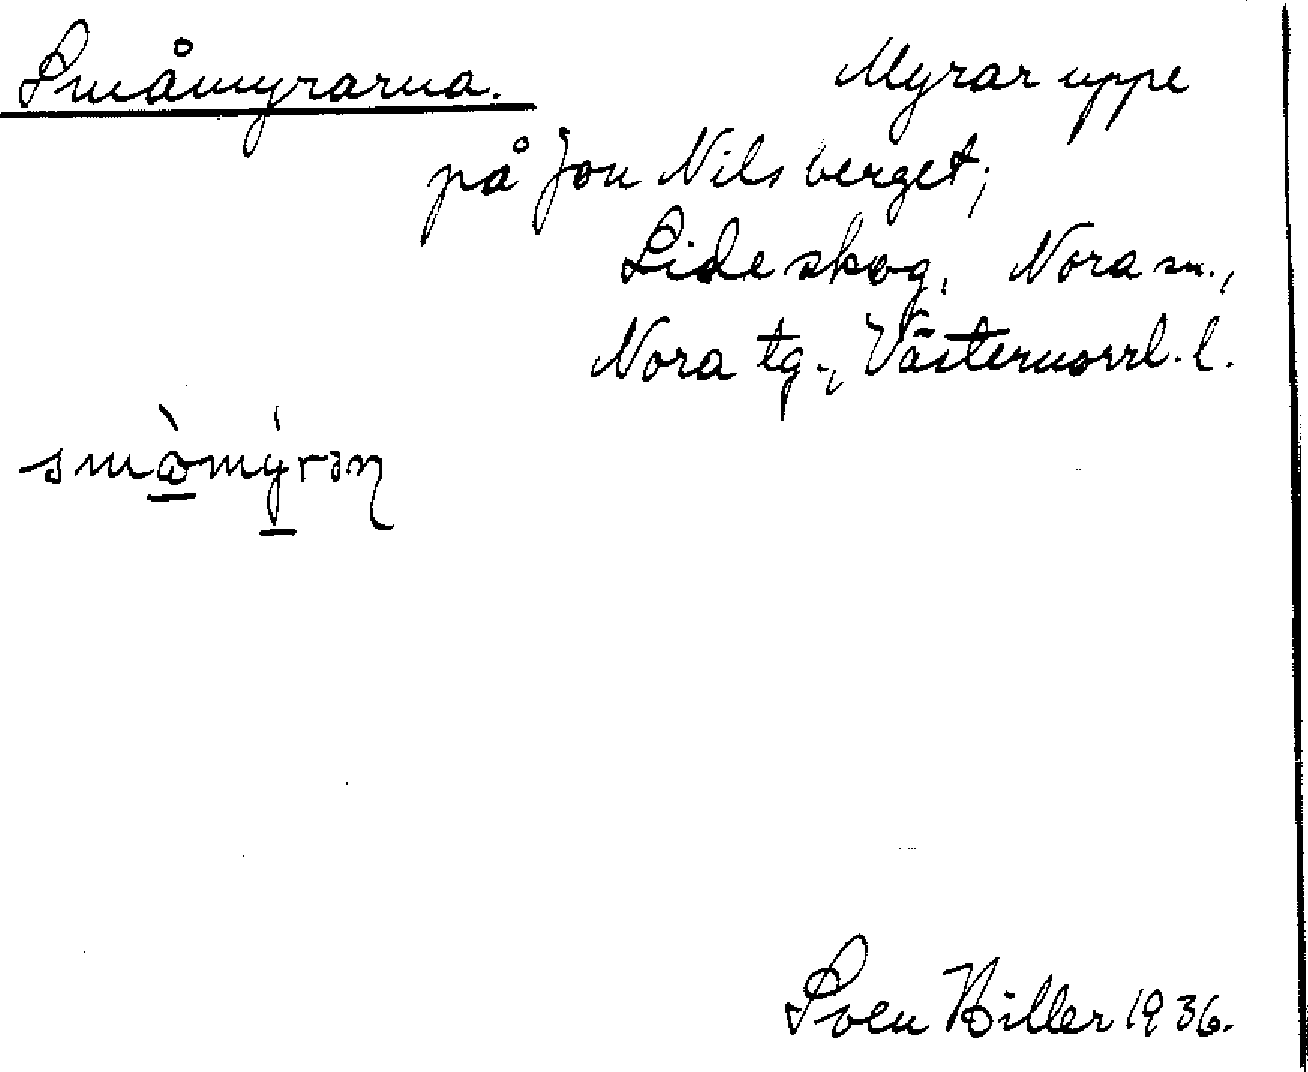 Småmyrarna. Myrar uppe
på Jon Nilsberget;
Lideskog, Nora sn.,
Nora tg., Västernorrl. l.
små̀mýrəɳ
Sven Biller 1936.